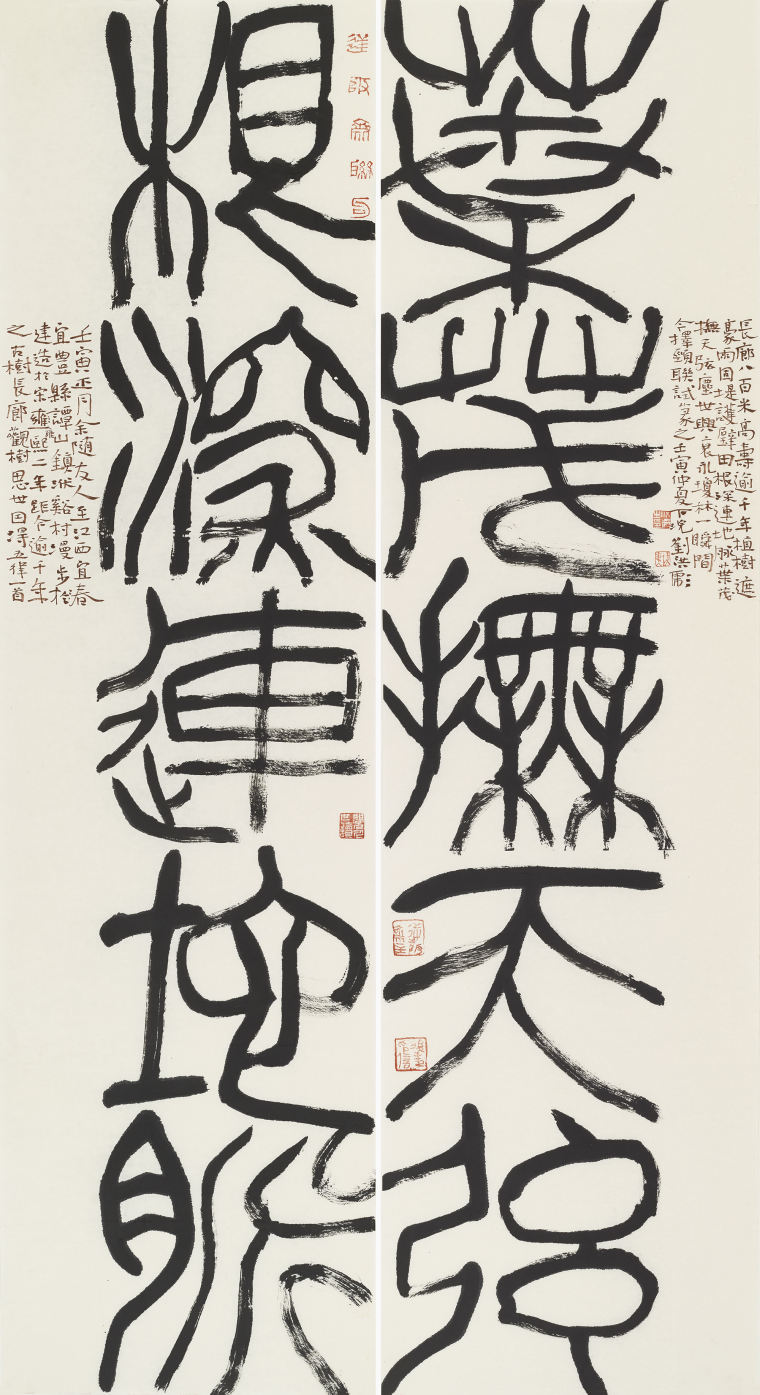 葉茂撫天弦
長廊八百米高壽逾千年植樹遮
豪雨固堤護壁田根深連地脈葉茂
撫天弦塵世興衰瓊林一瞬間
今擇頷聯試篆之壬寅仲夏下浣劉洪彪
根深連地脈
壬寅正月余隨友人至江西宜春
宜豐縣譚山鎮洑谿村漫步於
建造於宋雍熙二年距今逾千年
之古樹長廊觀樹思世因得五律一首